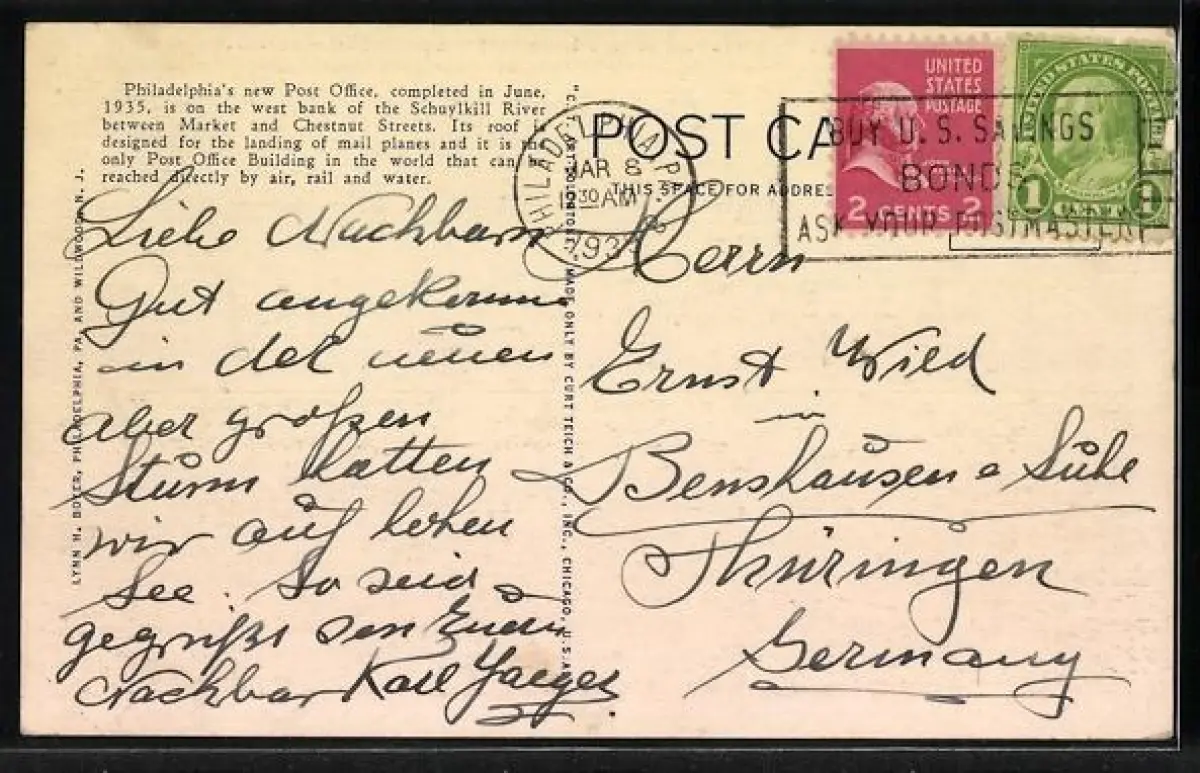 Philadelphia's new Post Office, completed in June,
1935, is on the west bank of the Schuylkill River
between Market and Chestnut Streets. Its roof is
designed for the landing of mail planes and it is the
only Post Office Building in the world that can be
reached directly by air, rail and water.
Liebe Nachbarn
Gut angekommen
in der neuen
aber großen
Sturm hatten
wir auf hohen
See. So seid
gegrüßt von Euern
Nachbar Karl Jaeger
LYNN H. BOYER, PHILADELPHIA, PA. AND WILDWOOD, N. J.
MADE ONLY BY CURT TEICH & CO., INC., CHICAGO, U.S.A.
POST CA
THIS SPACE FOR ADDRE
PHILADELPHIA, P
MAR 8
30 AM
193
UNITED
STATES
POSTAGE
2 CENTS 2
UNITED STATES POSTAGE
1 CENT 1
BUY U. S. SAVINGS
BONDS
ASK YOUR POSTMASTER
Herrn
Ernst Wild
in
Benshausen a Suhl
Thüringen
Germany